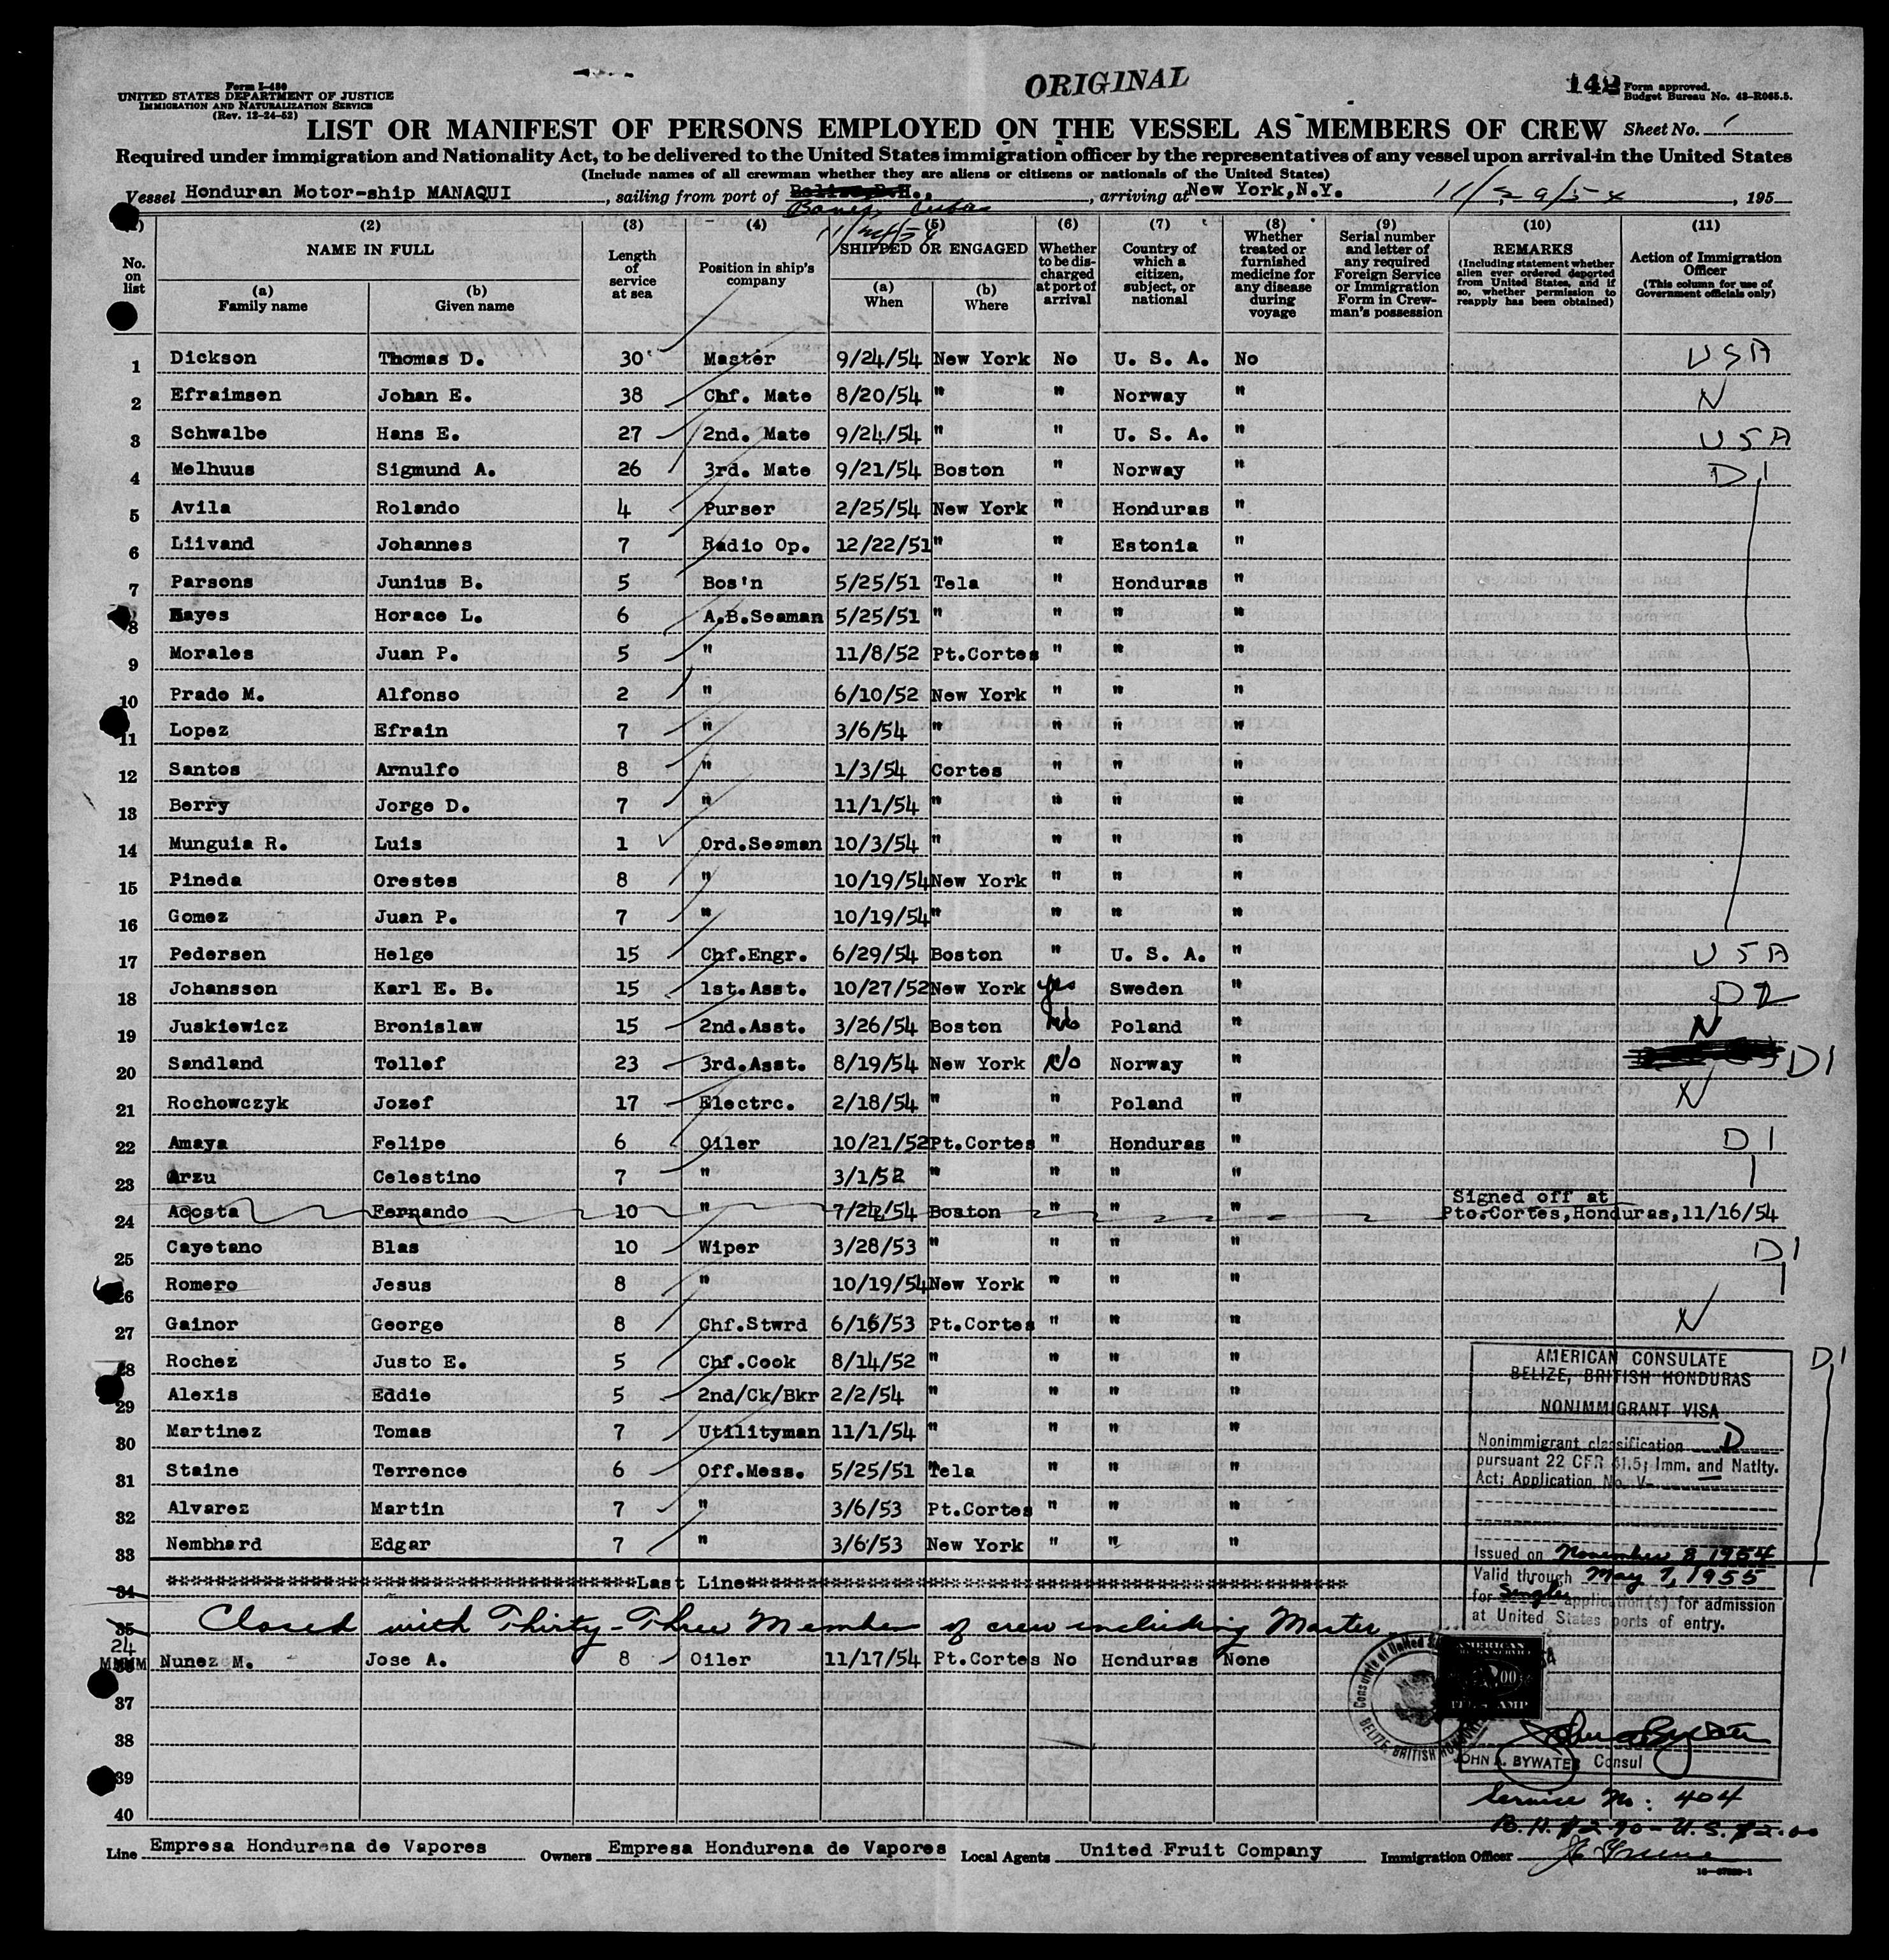 ORIGINAL
Form I-480
UNITED STATES DEPARTMENT OF JUSTICE
IMMIGRATION AND NATURALIZATION SERVICE
(Rev. 12-24-52)
142
Form approved.
Budget Bureau No. 43-R065.5.
LIST OR MANIFEST OF PERSONS EMPLOYED ON THE VESSEL AS MEMBERS OF CREW Sheet No. 1
Required under immigration and Nationality Act, to be delivered to the United States immigration officer by the representatives of any vessel upon arrival in the United States
(Include names of all crewman whether they are aliens or citizens or nationals of the United States)
Vessel Honduran Motor-ship MANAQUI, sailing from port of Belize, B.H., arriving at New York, N.Y. 11/29/54, 195
Banes, Cuba
11/24/54
(1) (2) (3) (4) (5) (6) (7) (8) (9) (10) (11)
No. on list
NAME IN FULL
(a) Family name
(b) Given name
Length of service at sea
Position in ship's company
SHIPPED OR ENGAGED
(a) When
(b) Where
Whether to be discharged at port of arrival
Country of which a citizen, subject, or national
Whether treated or furnished medicine for any disease during voyage
Serial number and letter of any required Foreign Service or Immigration Form in Crewman's possession
REMARKS
(Including statement whether alien ever ordered deported from United States, and if so, whether permission to reapply has been obtained)
Action of Immigration Officer
(This column for use of Government officials only)
1 Dickson Thomas D. 30 Master 9/24/54 New York No U. S. A. No USA
2 Efraimsen Johan E. 38 Chf. Mate 8/20/54 " " Norway " N
3 Schwalbe Hans E. 27 2nd. Mate 9/24/54 " " U. S. A. " USA
4 Melhuus Sigmund A. 26 3rd. Mate 9/21/54 Boston " Norway " D1
5 Avila Rolando 4 Purser 2/25/54 New York " Honduras "
6 Liivand Johannes 7 Radio Op. 12/22/51 " " Estonia "
7 Parsons Junius B. 5 Bos'n 5/25/51 Tela " Honduras "
8 Hayes Horace L. 6 A.B.Seaman 5/25/51 " " " "
9 Morales Juan P. 5 " 11/8/52 Pt.Cortes " " "
10 Prado M. Alfonso 2 " 6/10/52 New York " " "
11 Lopez Efrain 7 " 3/6/54 " " " "
12 Santos Arnulfo 8 " 1/3/54 Cortes " " "
13 Berry Jorge D. 7 " 11/1/54 " " " "
14 Munguia R. Luis 1 Ord.Seaman 10/3/54 " " " "
15 Pineda Orestes 8 " 10/19/54 New York " " "
16 Gomez Juan P. 7 " 10/19/54 " " " "
17 Pedersen Helge 15 Chf.Engr. 6/29/54 Boston " U. S. A. " USA
18 Johansson Karl E. B. 15 1st.Asst. 10/27/52 New York yes Sweden " D2
19 Juskiewicz Bronislaw 15 2nd.Asst. 3/26/54 Boston No Poland " N
20 Sandland Tollef 23 3rd.Asst. 8/19/54 New York No Norway " D1
21 Rochowczyk Jozef 17 Electrc. 2/18/54 " " Poland " N
22 Amaya Felipe 6 Oiler 10/21/52 Pt.Cortes " Honduras " D1
23 Arzu Celestino 7 " 3/1/52 " " " "
24 Acosta Fernando 10 " 7/24/54 Boston " " " Signed off at
Pto.Cortes, Honduras, 11/16/54
25 Cayetano Blas 10 Wiper 3/28/53 " " " " D1
26 Romero Jesus 8 " 10/19/54 New York " " "
27 Gainor George 8 Chf.Stwrd 6/16/53 Pt.Cortes " " " N
28 Rochez Justo E. 5 Chf.Cook 8/14/52 " " " " D1
29 Alexis Eddie 5 2nd/Ck/Bkr 2/2/54 " " " "
30 Martinez Tomas 7 Utilityman 11/1/54 " " " "
31 Staine Terrence 6 Off.Mess. 5/25/51 Tela " " "
32 Alvarez Martin 7 " 3/6/53 Pt.Cortes " " "
33 Nembhard Edgar 7 " 3/6/53 New York " " "
34 Last Line
35 Closed with Thirty-Three Members of crew including Master
24 Nunez M. Jose A. 8 Oiler 11/17/54 Pt.Cortes No Honduras None
37
38
39
40
AMERICAN CONSULATE
BELIZE, BRITISH HONDURAS
NONIMMIGRANT VISA
Nonimmigrant classification D
pursuant 22 CFR 41.5; Imm. and Natlty.
Act; Application No. V-
Issued on November 8, 1954
Valid through May 7, 1955
for single application(s) for admission
at United States ports of entry.
John A. Bywater
JOHN A. BYWATER Consul
Service No: 404
B.H. $2.90 - U.S. $2.00
Line Empresa Hondurena de Vapores Owners Empresa Hondurena de Vapores Local Agents United Fruit Company Immigration Officer